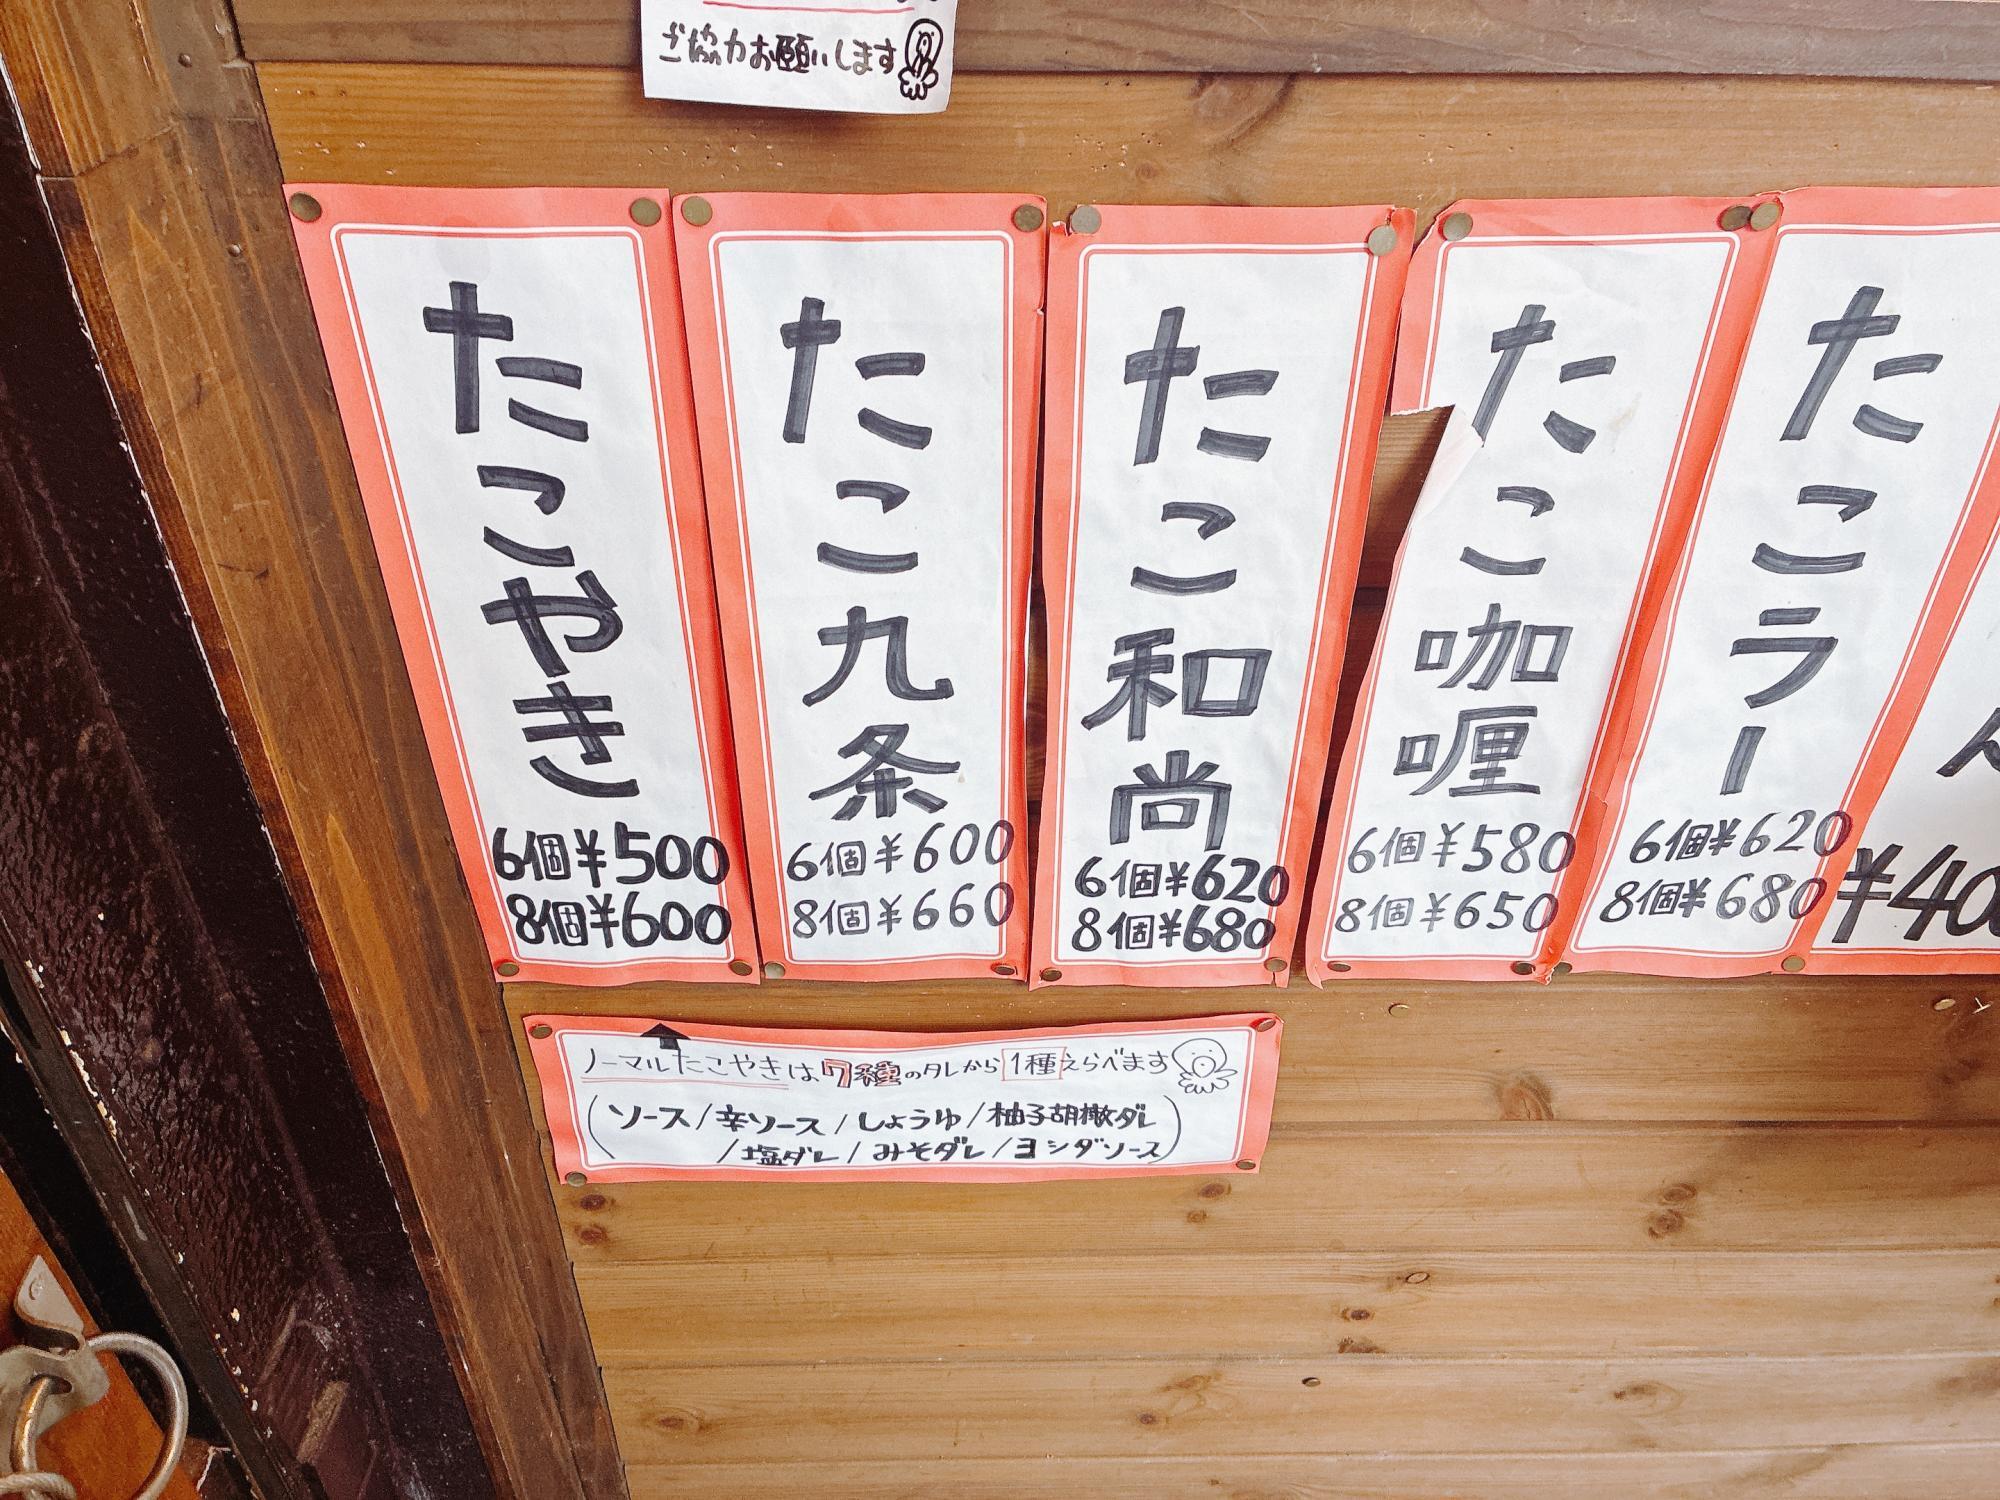 ご協力お願いします
たこやき
6個¥500
8個¥600
たこ九条
6個¥600
8個¥660
たこ和尚
6個¥620
8個¥680
たこ咖喱
6個¥580
8個¥650
たこラー
6個¥620
8個¥680
ん
ノーマルたこやきは7種のタレから1種えらべます
(ソース/辛ソース/しょうゆ/柚子胡椒ダレ
/塩ダレ/みそダレ/ヨシダソース)